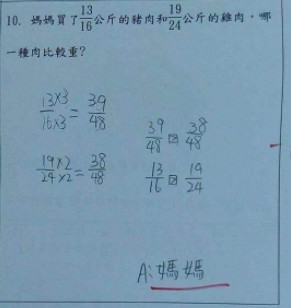 10. 媽媽買了13/16公斤的豬肉和19/24公斤的雞肉，哪
一種肉比較重？
13×3/16×3 = 39/48
19×2/24×2 = 38/48
39/48 > 38/48
13/16 > 19/24
A：媽媽